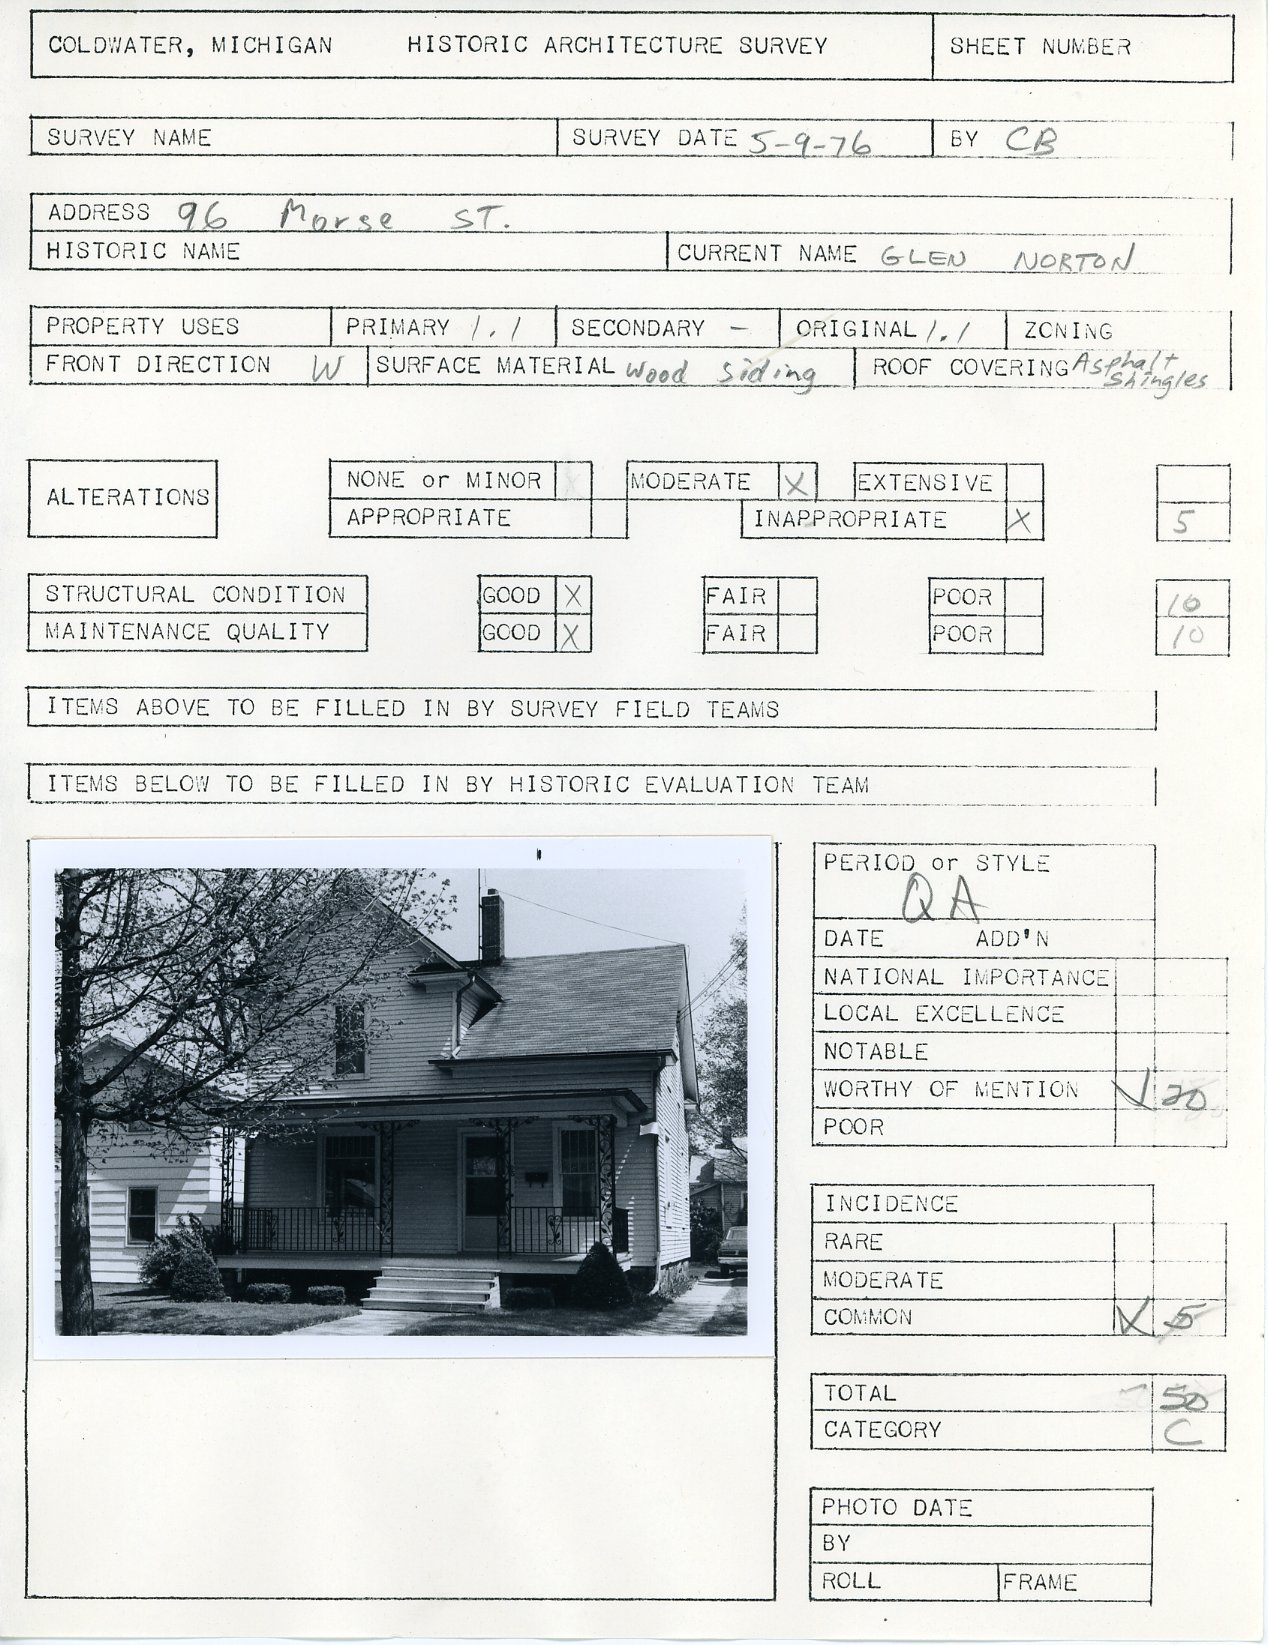 COLDWATER, MICHIGAN HISTORIC ARCHITECTURE SURVEY SHEET NUMBER
SURVEY NAME SURVEY DATE 5-9-76 BY CB
ADDRESS 96 Morse ST.
HISTORIC NAME CURRENT NAME GLEN NORTON
PROPERTY USES PRIMARY 1.1 SECONDARY - ORIGINAL 1.1 ZONING
FRONT DIRECTION W SURFACE MATERIAL Wood Siding ROOF COVERING Asphalt Shingles
ALTERATIONS NONE or MINOR MODERATE X EXTENSIVE
APPROPRIATE INAPPROPRIATE X 5
STRUCTURAL CONDITION GOOD X FAIR POOR 10
MAINTENANCE QUALITY GOOD X FAIR POOR 10
ITEMS ABOVE TO BE FILLED IN BY SURVEY FIELD TEAMS
ITEMS BELOW TO BE FILLED IN BY HISTORIC EVALUATION TEAM
PERIOD or STYLE
QA
DATE ADD'N
NATIONAL IMPORTANCE
LOCAL EXCELLENCE
NOTABLE
WORTHY OF MENTION 20
POOR
INCIDENCE
RARE
MODERATE
COMMON X 5
TOTAL 50
CATEGORY C
PHOTO DATE
BY
ROLL FRAME